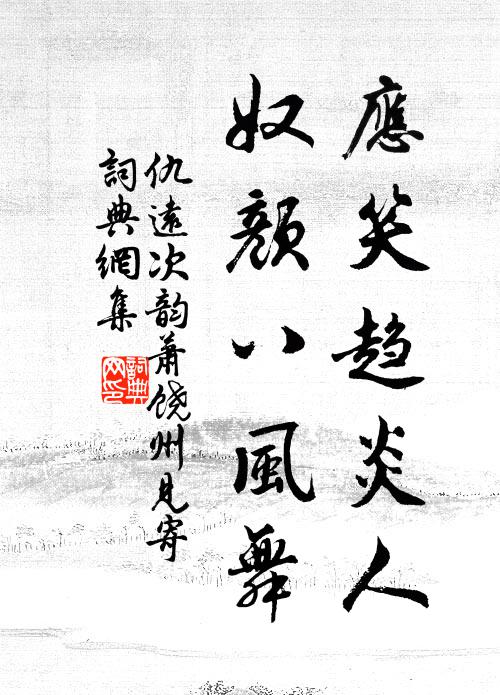 應笑趨炎人
奴顏八風舞
仇遠次韵蕭饒州見寄
詞典網集
詞典網印